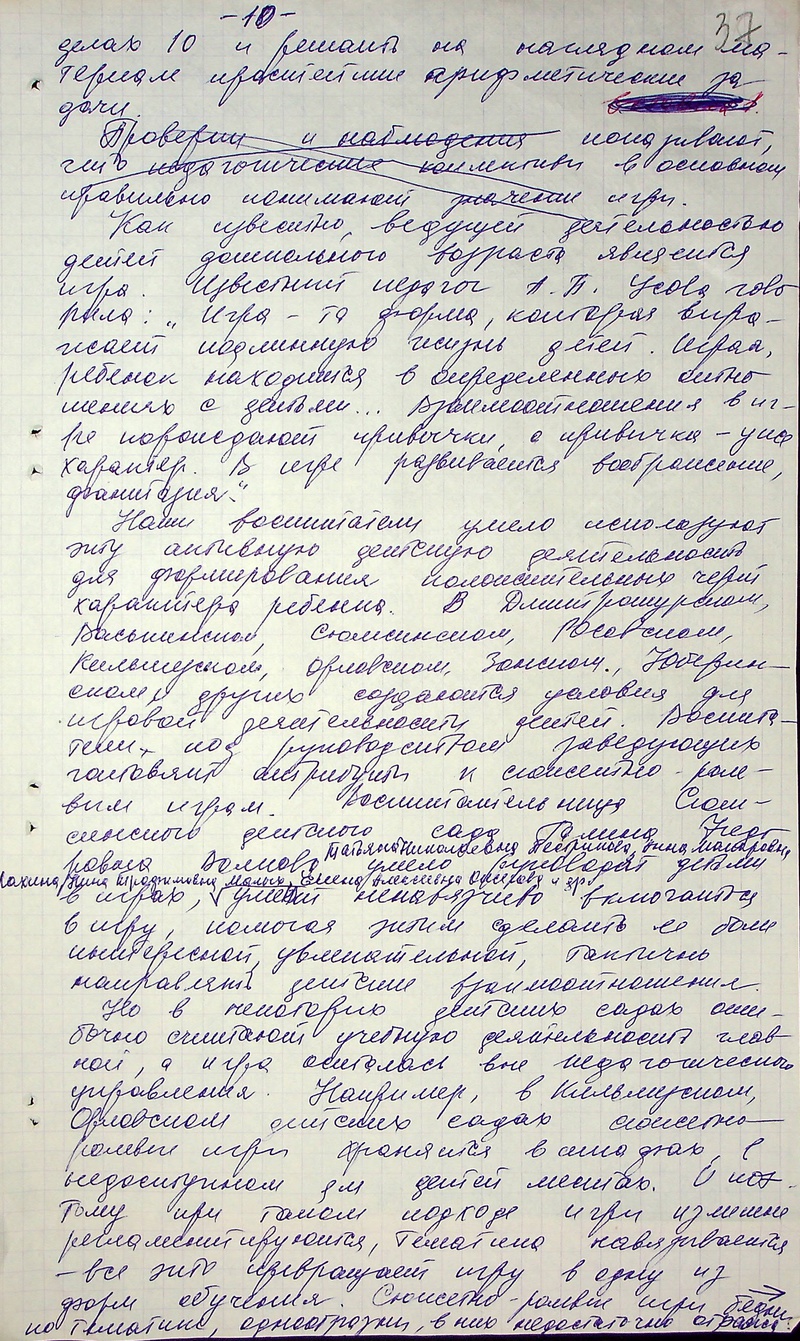 -10-
37
делах 10 и решать на наглядном ма-
териале простейшие арифметические за
дачи.
Проверки и наблюдения показывают,
что педагогические коллективы в основном
правильно понимают значение игры.
Как известно, ведущей деятельностью
детей дошкольного возраста является
игра. Известный педагог А.П. Усова гово
рила: „Игра – та форма, которая выра-
жает подлинную жизнь детей. Играя,
ребенок находится в определенных отно
шениях с детьми... Взаимоотношения в иг-
ре порождают привычки, а привычка – уже
характер. В игре развивается воображение,
фантазия."
Наши воспитатели умело используют
эту активную детскую деятельность
для формирования положительных черт
характера ребенка. В Дмитрошурском,
Васькинском, Сюмсинском,
Кильмезском, Орловском, Зонском.,
ском и других создаются условия для
игровой деятельности детей. Воспита-
тели под руководством заведующих
готовят атрибуты к сюжетно-роле-
вым играм. Воспитательница Сюм-
синского детского сада Галина
ровна Волкова, умело руководят детьми
Татьяна Николаевна Нина
Нина Трофимовна Елена Алексеевна и др.
в играх, умеют ненавязчиво включаться
в игру, помогая этим сделать ее более
интересной, увлекательной, тактично
направлять детские взаимоотношения.
Но в некоторых детских садах оши-
бочно считают учебную деятельность глав
ной, а игра осталась вне педагогического
управления. Например, в Кильмезском,
Орловском детских садах сюжетно-
ролевые игры хранятся в шкафах, в
недоступном для детей местах. И поэ-
тому при таком подходе игры излишне
регламентируются, тематика навязывается
– все это превращает игру в одну из
форм обучения. Сюжетно-ролевые игры бедны
по тематике, однообразны, в них недостаточно отраже-